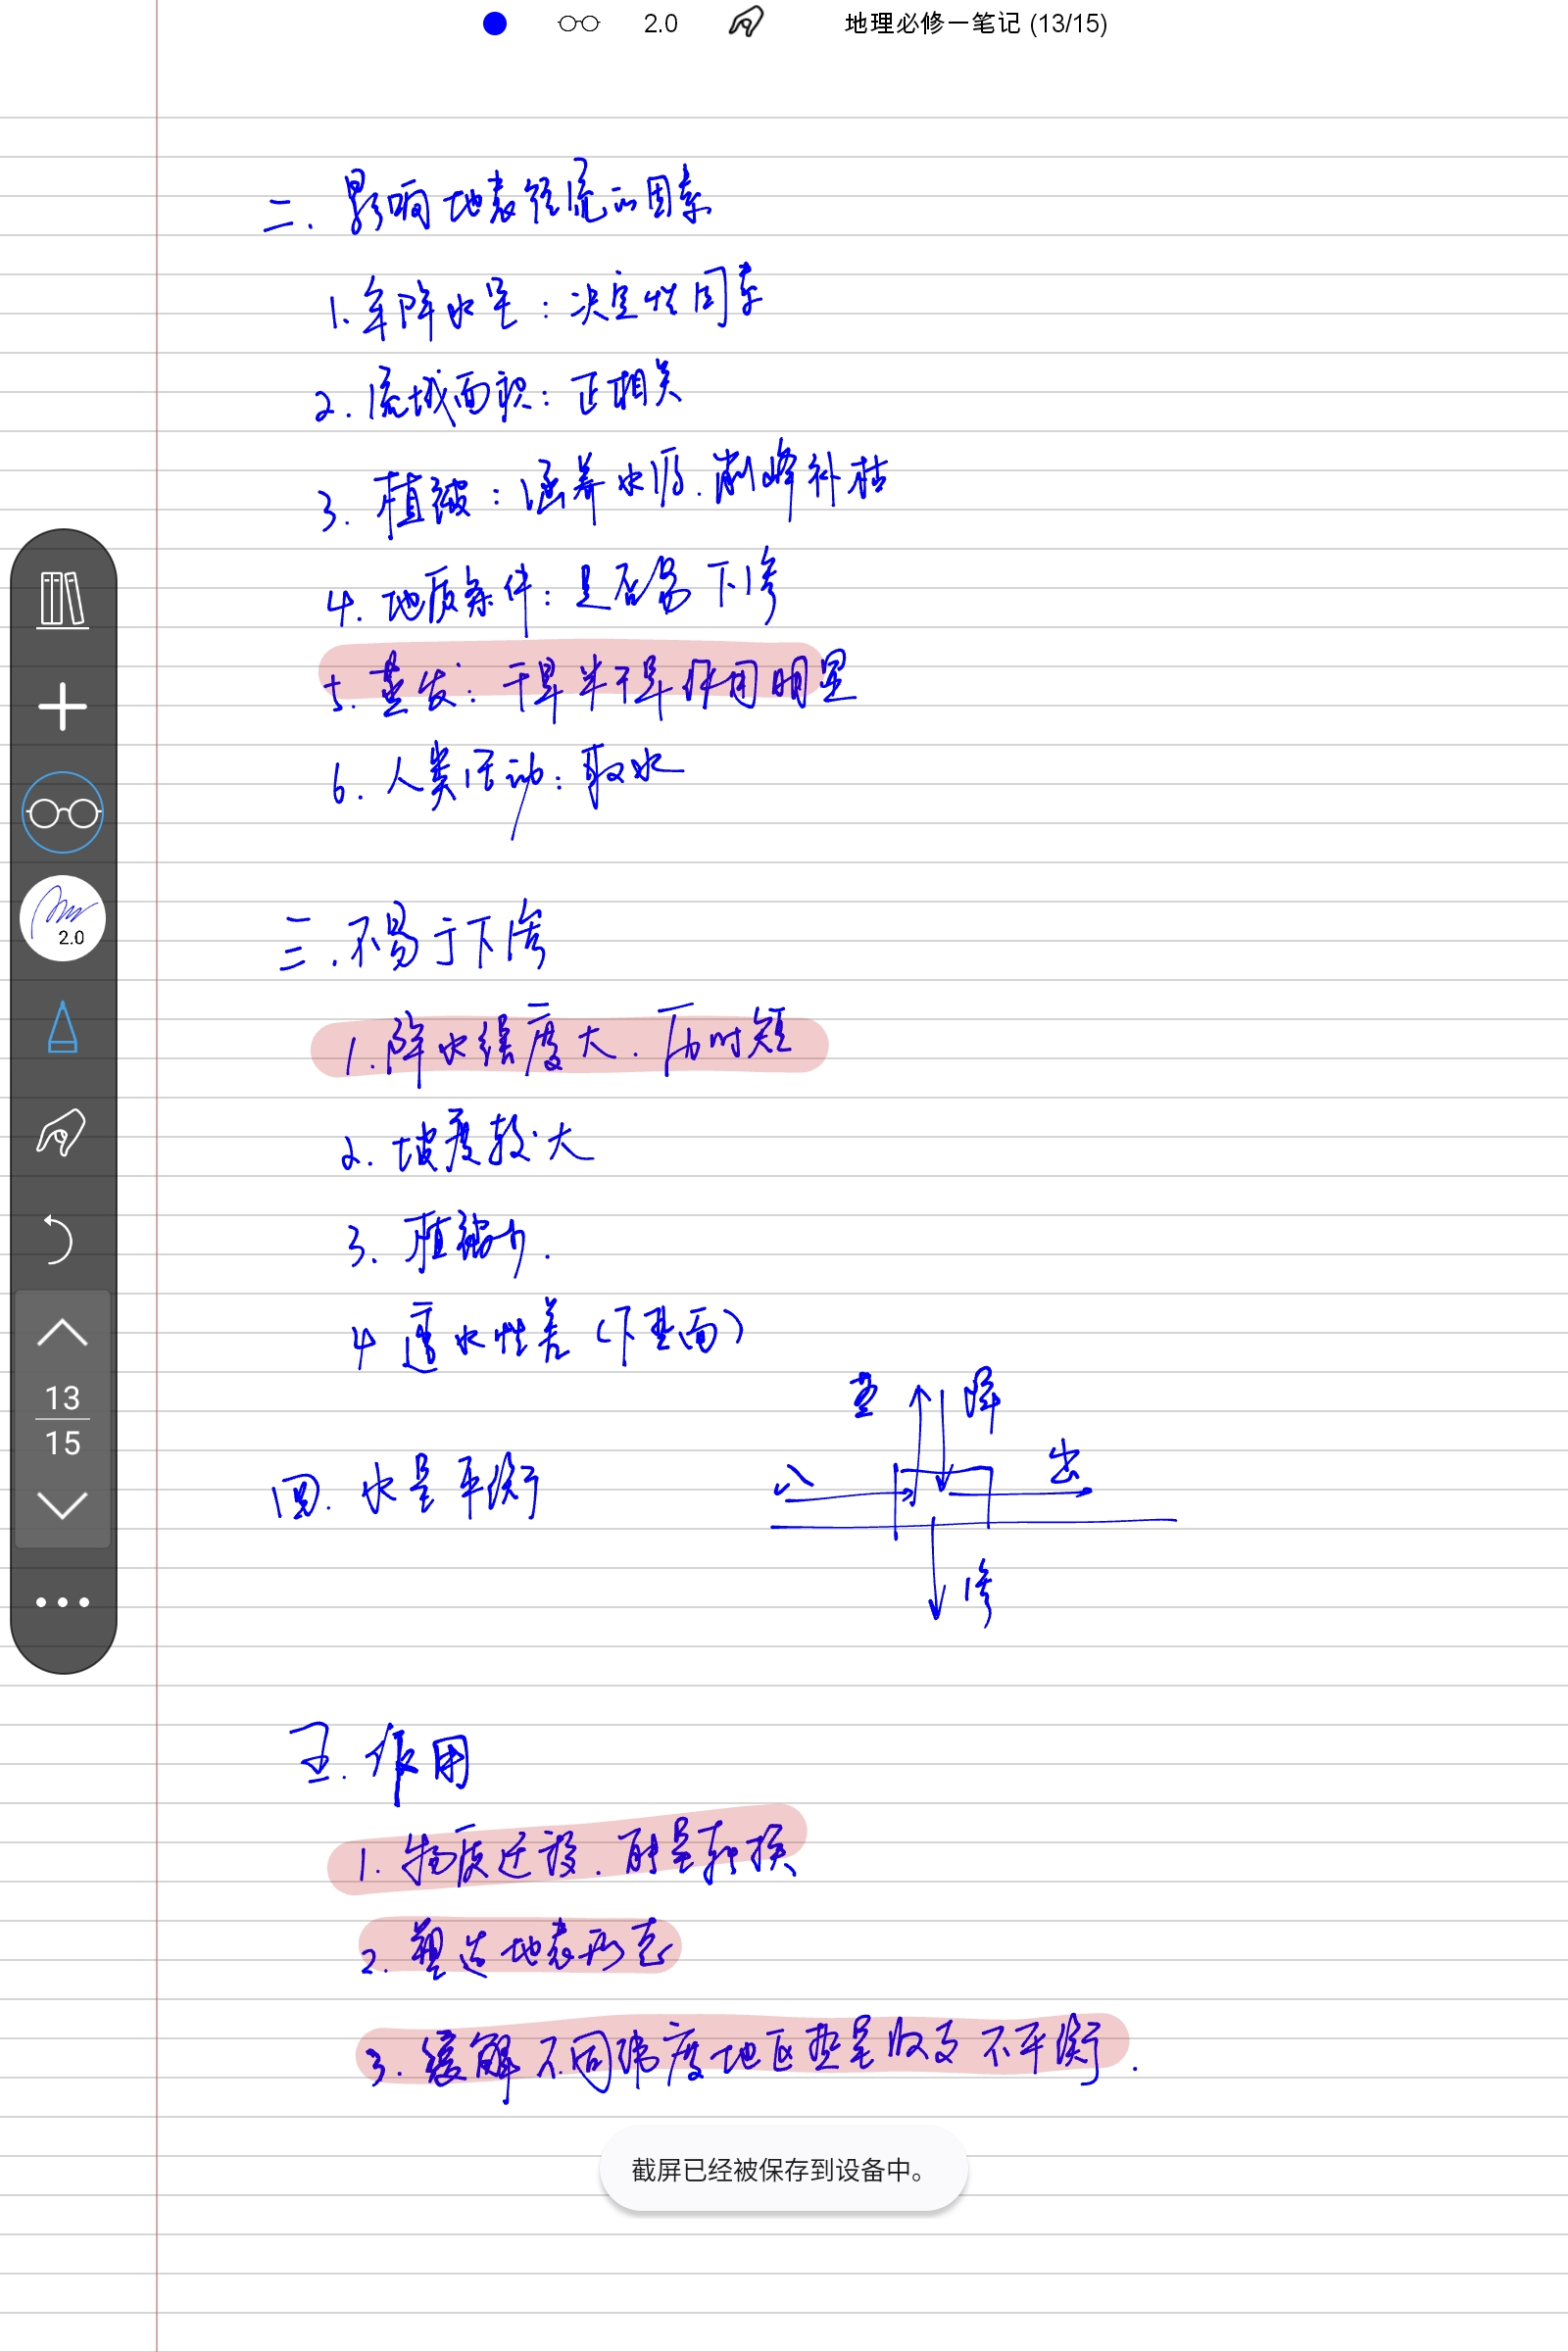 2.0 地理必修一笔记 (13/15)
二. 影响地表径流的因素
1. 年降水量：决定性因素
2. 流域面积：正相关
3. 植被：涵养水源.削峰补枯
4. 地质条件：是否易下渗
5. 蒸发：干旱半干旱作用明显
6. 人类活动：取水
2.0
三.不易于下渗
1.降水强度大.历时短
2. 坡度较大
3. 植被少.
4 透水性差(下垫面)
13
15
蒸 降
入 出
四. 水量平衡
渗
五.作用
1. 物质迁移.能量转换
2. 塑造地表形态
3. 缓解不同纬度地区热量收支不平衡.
截屏已经被保存到设备中。